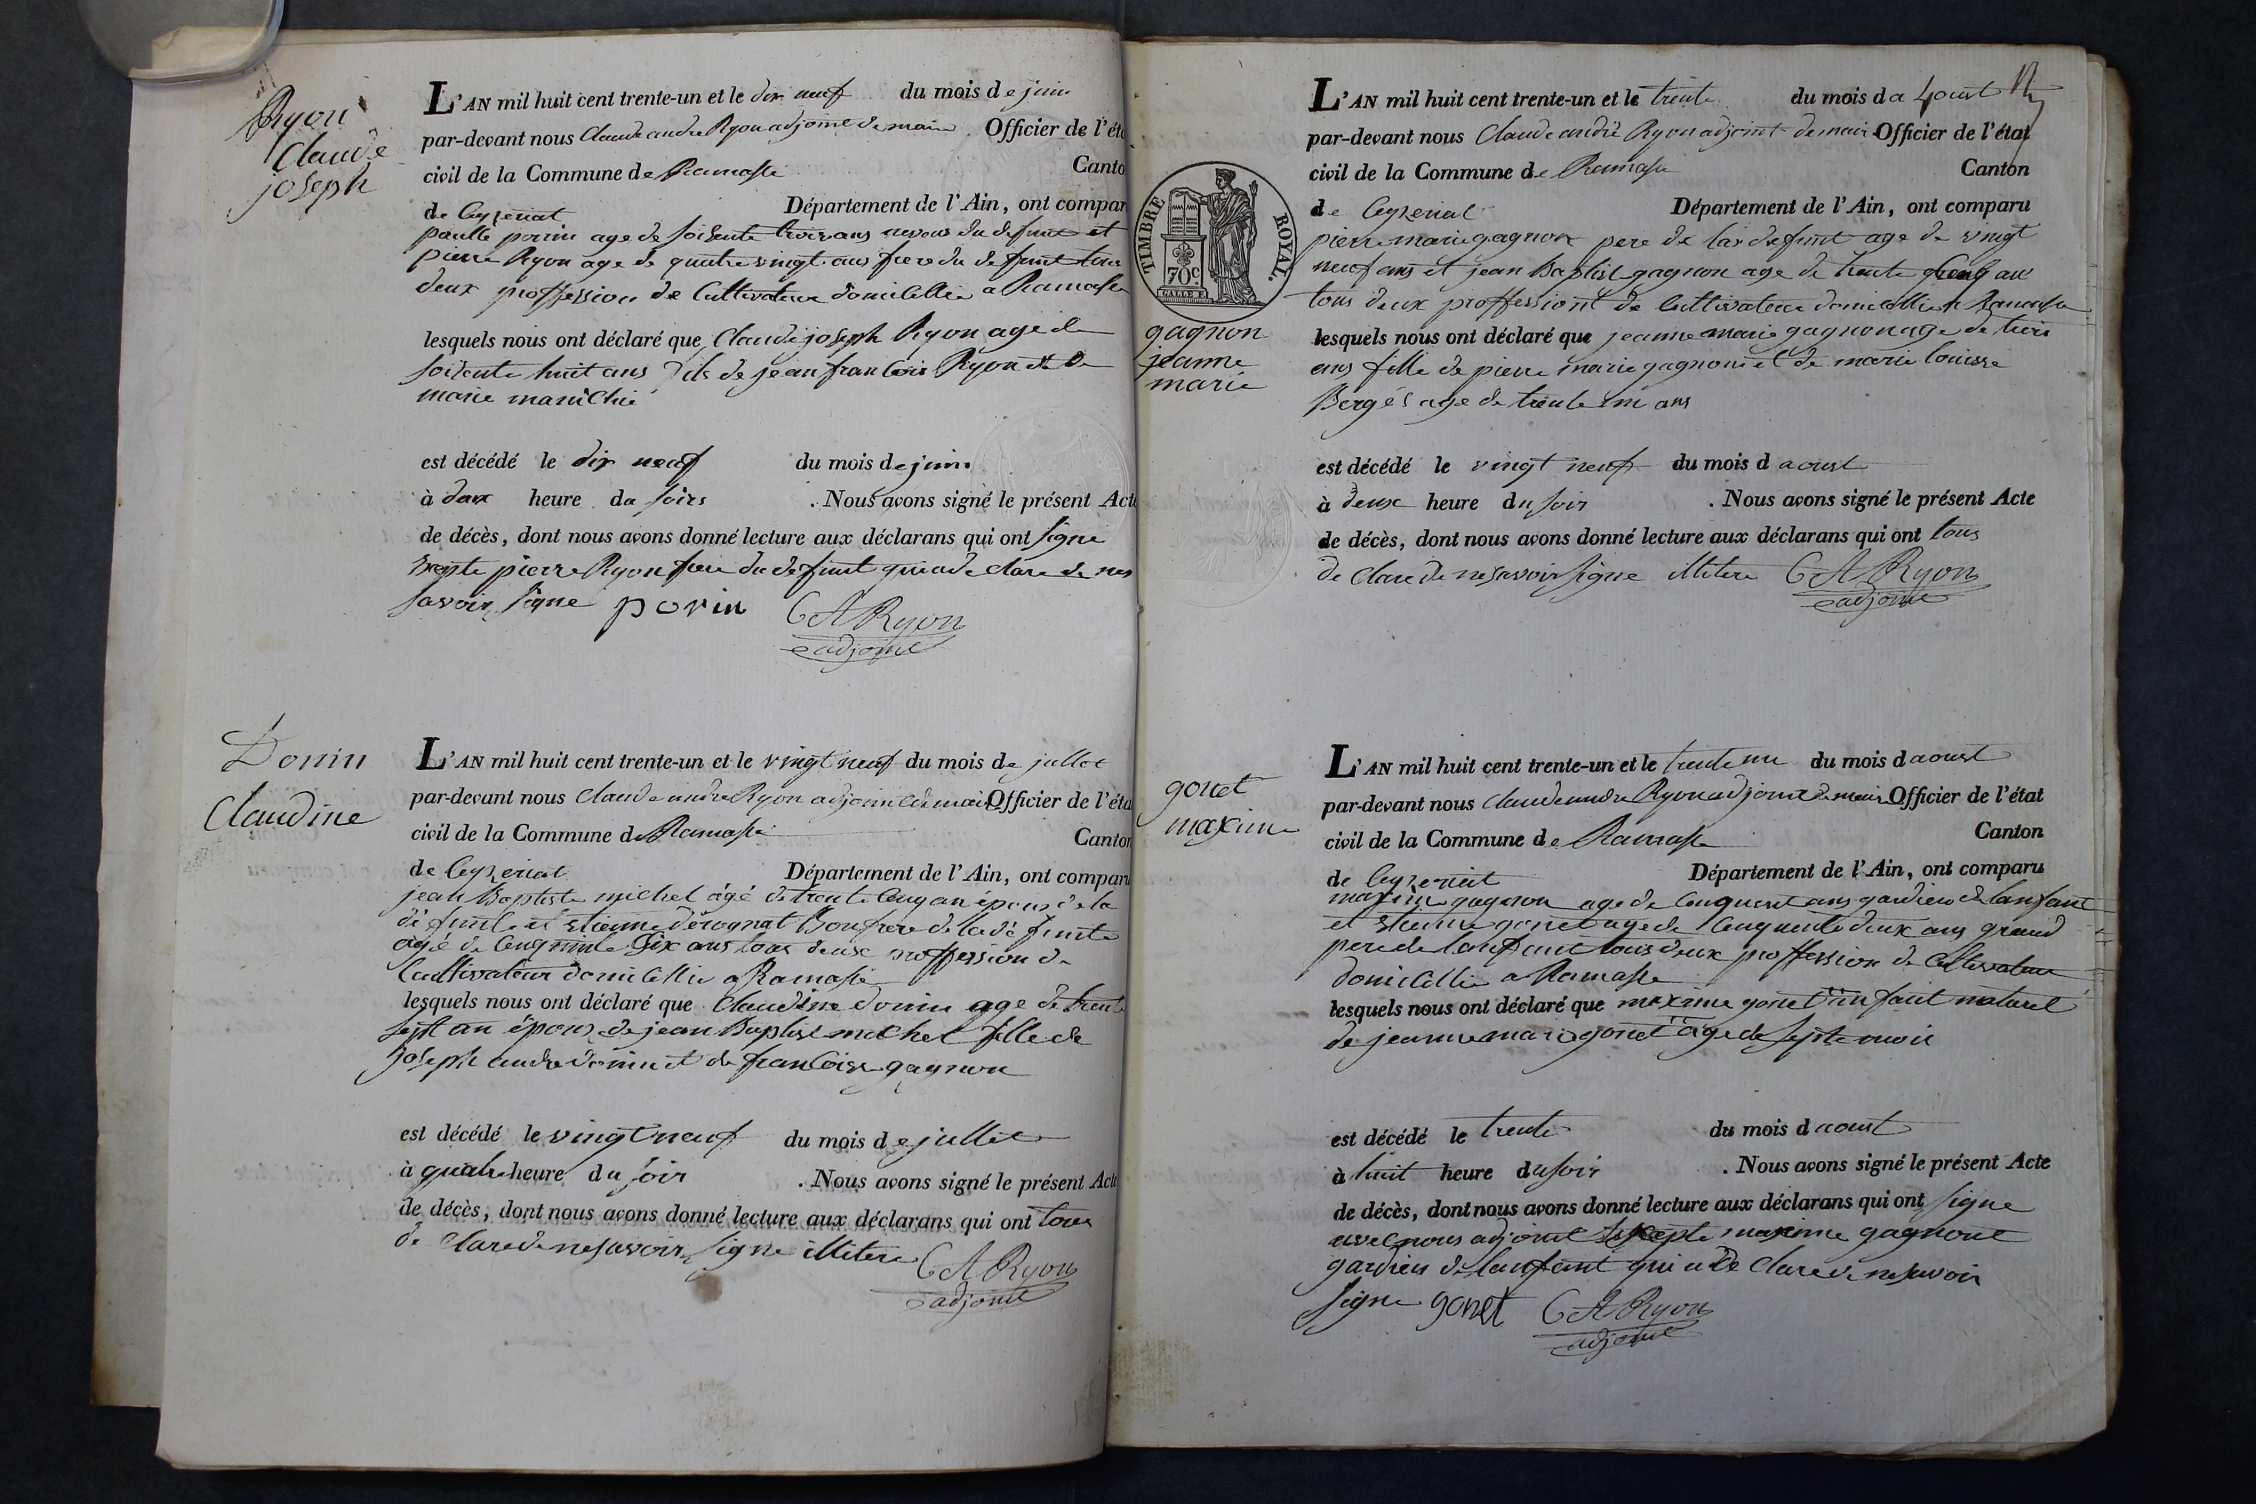 Ryon
Claude
joseph
L'AN mil huit cent trente-un et le dix neuf du mois de juin
par-devant nous Claude andre Ryon adjoint de maire Officier de l'éta
civil de la Commune de Ramasse
Canto
de Ceyzeriat Département de l'Ain, ont compar
paulle porin age de soisente trois ans neveux du defunt et
pierre Ryon age de quatre vingt ans frere du defunt tous
deux proffession de Cultivateur domicillié a Ramasse
lesquels nous ont déclaré que Claude joseph Ryon age de
soisente huit ans fils de jean francois Ryon et de
marie
est décédé le dix neuf du mois de juin
à deux heure du soirs . Nous avons signé le présent Acte
de décès, dont nous avons donné lecture aux déclarans qui ont signe
excepte pierre Ryon frere du defunt qui a de clare de ne
savoir signe porin CA Ryon
adjoint
Donin
Claudine
L'AN mil huit cent trente-un et le vingt neuf du mois de jullet
par-devant nous Claude andre Ryon adjoint de maire Officier de l'éta
civil de la Commune de Ramasse
Canton
de Ceyzeriat Département de l'Ain, ont comparu
jean Baptiste michel âgé de trente Cinq an époux de la
défunte et Etienne dérognat Bonfrere de la défunte
âgé de Cinquante Six ans tous deux proffession de
Cultivateur domicillié a Ramasse
lesquels nous ont déclaré que Claudine donin age de trente
sept an épouz de jean Baptist michel fille de
joseph andre donin et de francoise gagnon
est décédé le vingt neuf du mois de jullet
à quatre heure du soir . Nous avons signé le présent Acte
de décès, dont nous avons donné lecture aux déclarans qui ont tous
de clare de ne savoir signe illitere CA Ryon
adjoint
TIMBRE ROYAL.
70c
gagnon
jeanne
marie
L'AN mil huit cent trente-un et le trente du mois da 4oust
par-devant nous Claude andré Ryon adjoint de maire Officier de l'état
civil de la Commune de Ramasse
Canton
de Ceyzeriat Département de l'Ain, ont comparu
pierre marie gagnon pere de la defunt age de vingt
neuf ans et jean Baptist gagnon age de trente Cinq an
tous deux proffessiont de Cultivateur domicillié a Ramasse
lesquels nous ont déclaré que jeanne marie gagnon age de trois
ans fille de pierre marie gagnon et de marie louisse
Bergés age de trente un ans
est décédé le vingt neuf du mois d aoust
à deux heure du soir . Nous avons signé le présent Acte
de décès, dont nous avons donné lecture aux déclarans qui ont tous
de clare de ne savoir signe illitere CA Ryon
adjoint
gonet
maxime
L'AN mil huit cent trente-un et le trente un du mois d aoust
par-devant nous Claude andre Ryon adjoint de maire Officier de l'état
civil de la Commune de Ramasse
Canton
de Ceyzeriat Département de l'Ain, ont comparu
maxime gagnon age de Cinquent ans gardien de lanfant
et Etienne gonet age de Cinquente deux ans grand
pere de lanfant tous deux proffession de Cultivateur
domicillié a Ramasse
lesquels nous ont déclaré que maxime gonet enfant naturel
de jeanne marie gonet âge de septe mois
est décédé le trente du mois d aoust
à huit heure du soir . Nous avons signé le présent Acte
de décès, dont nous avons donné lecture aux déclarans qui ont signe
avec nous adjoint excepte maxime gagnont
gardien de lanfant qui a de clare de ne savoir
signe gonet CA Ryon
adjoint